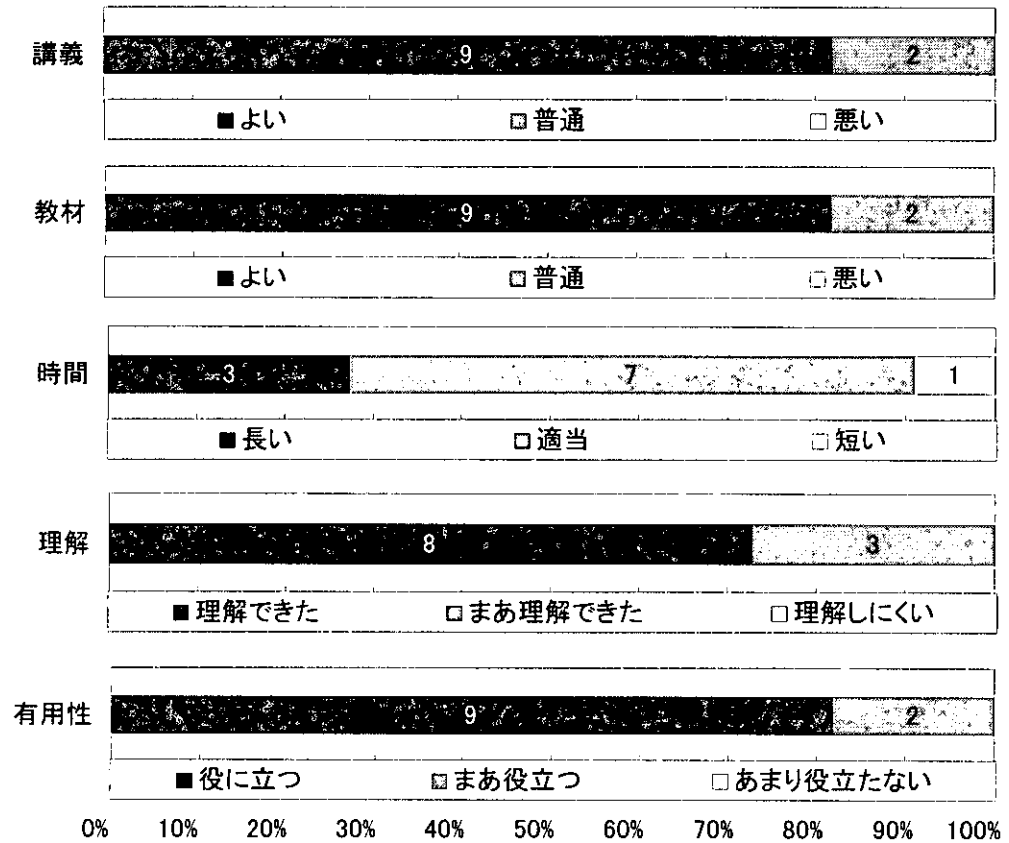 講義 9 2
■よい □普通 □悪い
教材 9 2
■よい □普通 □悪い
時間 3 7 1
■長い □適当 □短い
理解 8 3
■理解できた □まあ理解できた □理解しにくい
有用性 9 2
■役に立つ □まあ役立つ □あまり役立たない
0% 10% 20% 30% 40% 50% 60% 70% 80% 90% 100%